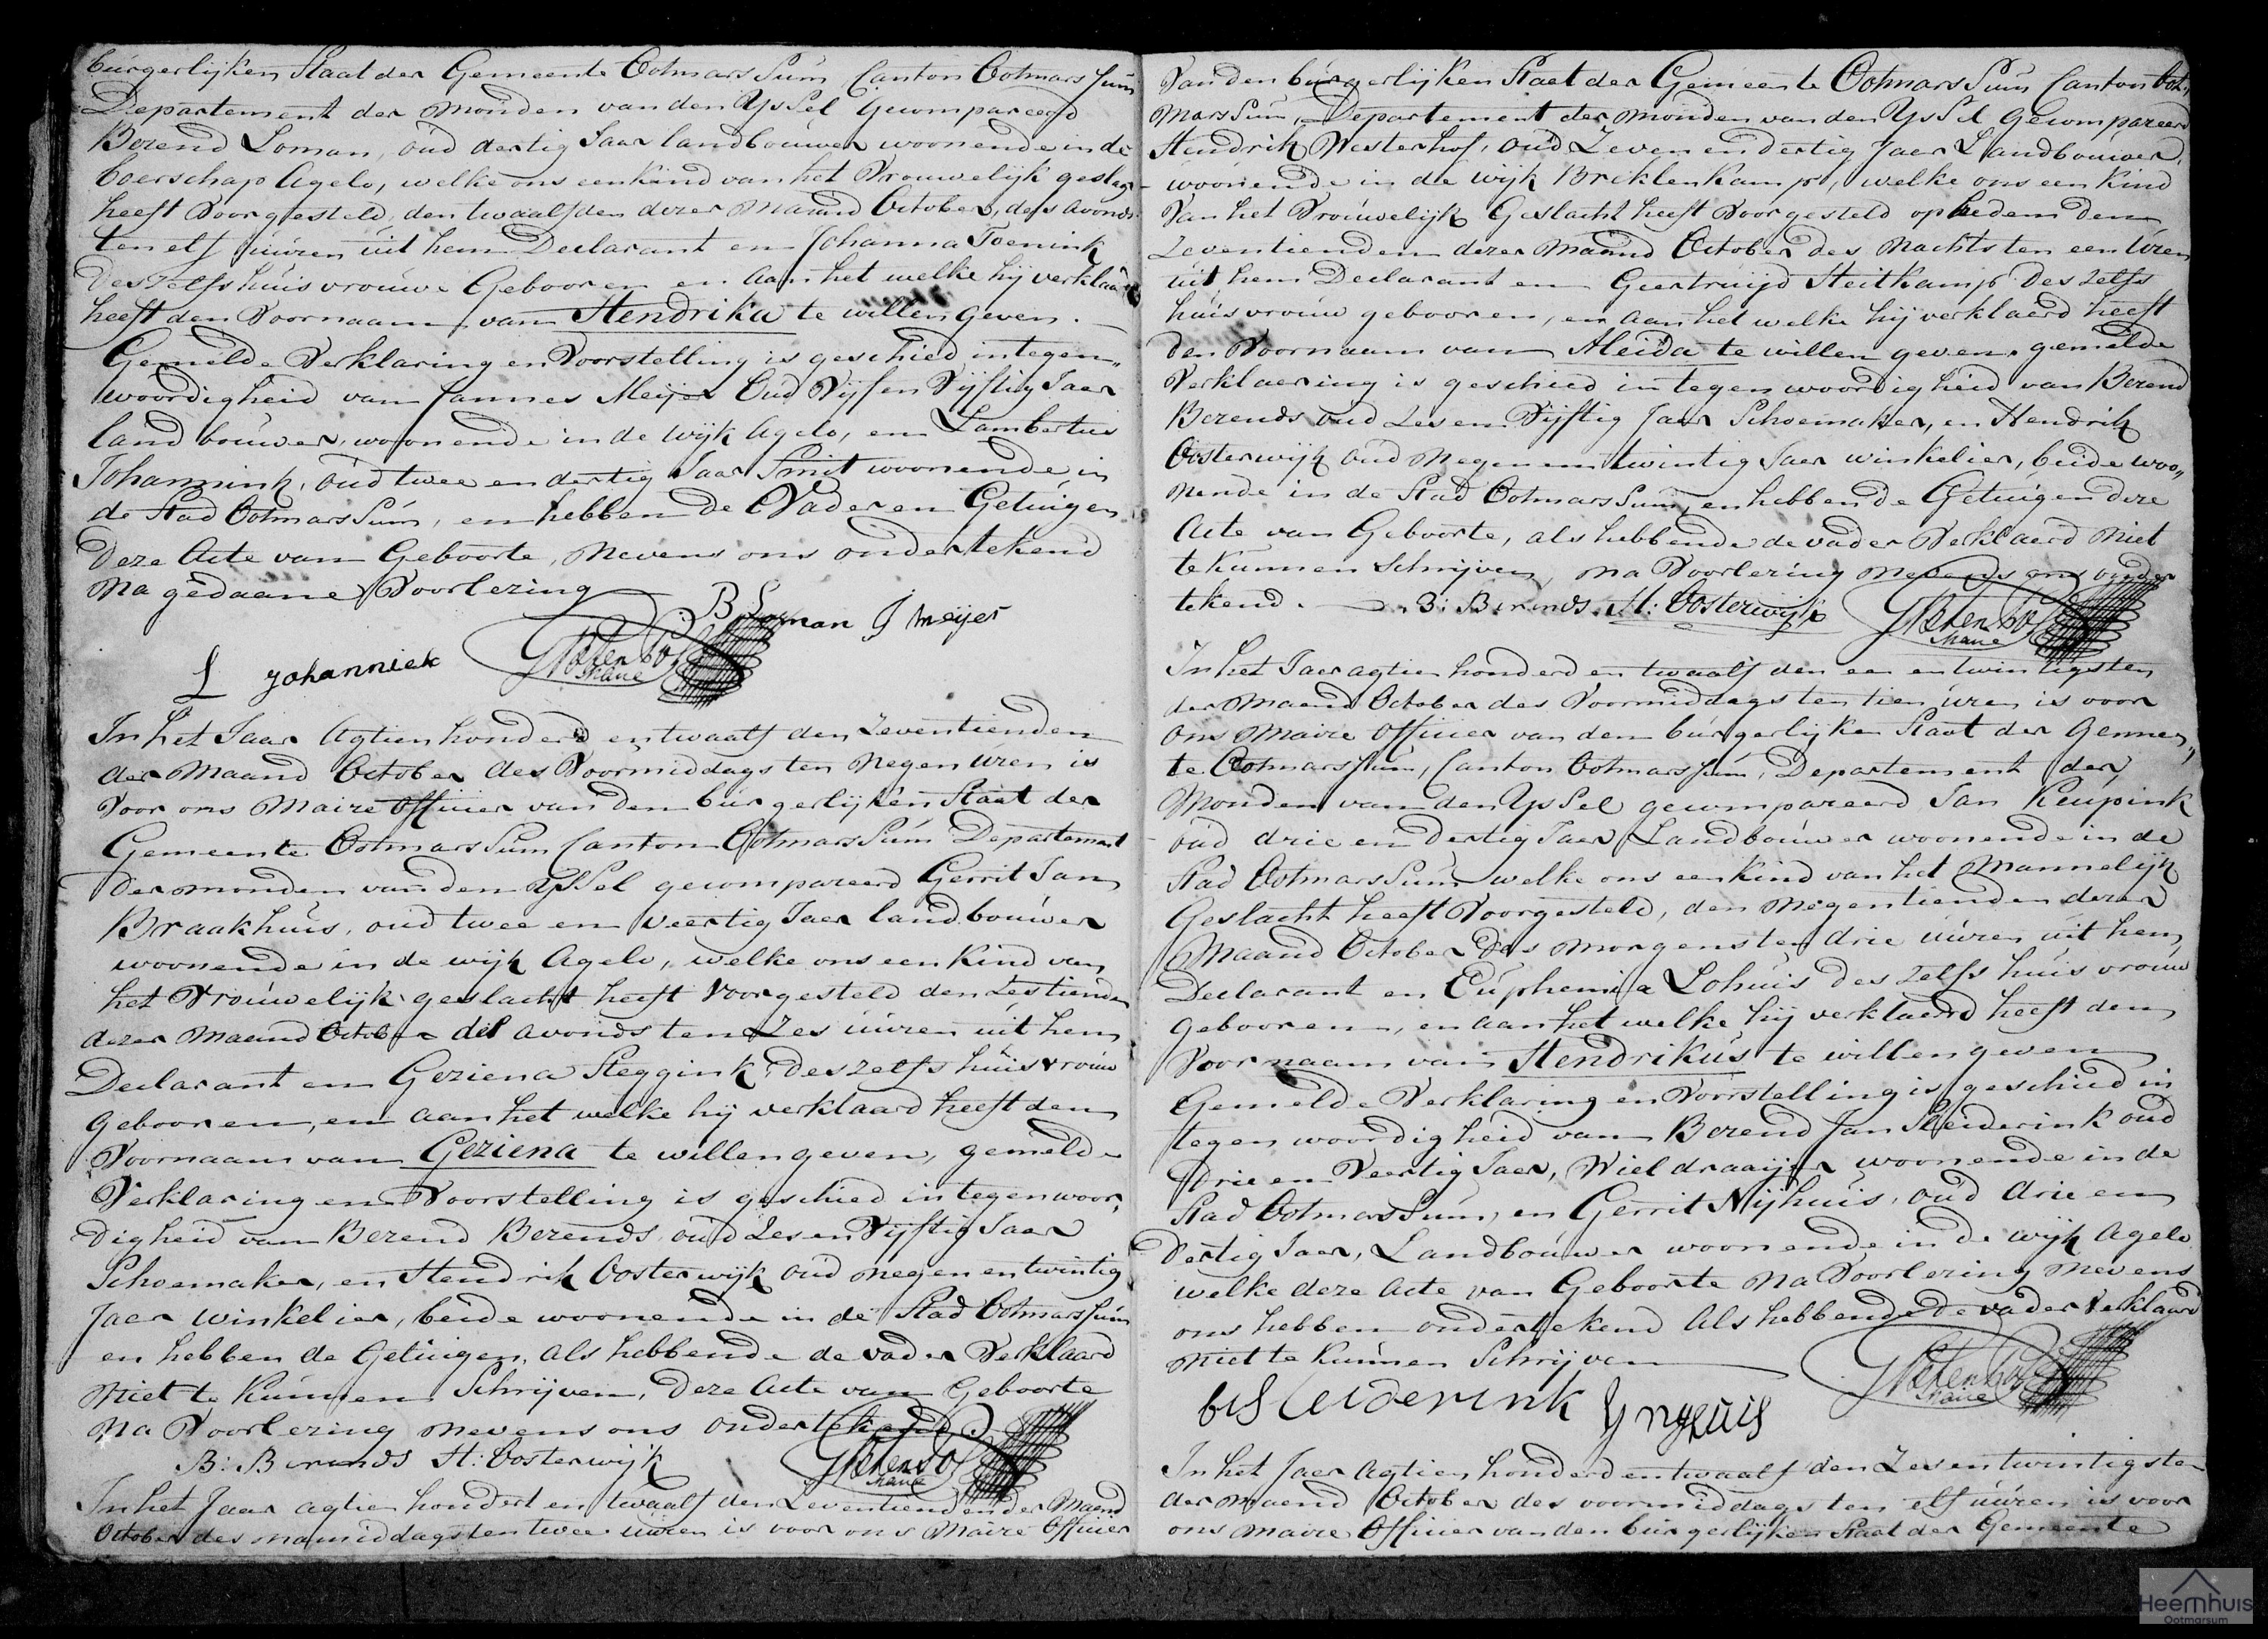 burgerlijken Staat der Gemeente Ootmarssum Canton Ootmarssum
Departement der monden van den Yssel Gecompareerd
Berend Loman, oud dertig Jaar landbouwer woonende in de
boerschap Agelo, welke ons een kind van het Vrouwelijk geslagt
heeft Voorgesteld, den twaalfden dezer maand October, des avonds
ten elf uuren uit hem Declarant en Johanna Toenink
deszelfs huisvrouwe Gebooren en aan het welke hij verklaard
heeft den Voornaam van Hendrika te willen geven.
Gemelde Verklaring en Voorstelling is geschied in tegen„
woordigheid van Jannes Meijer Oud Vijf en Vijftig Jaer
landbouwer, woonende in de wijk Agelo, en Lambertus
Johannink, oud twee en dertig Jaar Smit woonende in
de Stad Ootmarssum, en hebben de Vader en Getuigen
Deze Acte van Geboorte, Nevens ons ondertekend
Na gedaane Voorlezing
B Loman J Meijer
L Johannick
Maire
In het Jaar Agtienhonderd en twaalf den Zeventienden
der Maand October des Voormiddags ten Negen uren is
Voor ons Maire Officier van den burgerlijken Staat der
Gemeente Ootmarssum Canton Ootmarssum Departement
Der monden van den Yssel gecompareerd Gerrit Jan
Braakhuis, oud twee en veertig Jaer landbouwer
woonende in de wijk Agelo, welke ons een Kind van
het Vrouwelijk geslacht heeft Voorgesteld den Zestienden
dezer Maand October des avonds ten Zes uuren uit hem
Declarant en Geziena Steggink, deszelfs huisvrouw
gebooren, en aan het welke hij verklaard heeft den
Voornaam van Geziena te willen geven, gemelde
Verklaring en Voorstelling is geschied in tegenwoor„
digheid van Berend Berends, oud Zes en Vijftig Jaar
Schoemaker, en Hendrik Oosterwijk oud negen en twintig
Jaer winkelier, beide woonende in de Stad Ootmarssum
en hebben de Getuigen, als hebbende de vader Verklaard
Niet te Kunnen Schrijven, Deze Acte van Geboorte
Na Voorlezing nevens ons ondertekend.
B: Berends H: Oosterwijk
Maire
In het Jaar agtien hondert en twaalf den Zeventienden der Maend
October des namiddags ten twee uuren is voor ons Maire Officier
Van den burgerlijken Staet der Gemeente Ootmarssum Canton Oot„
marssum, Departement der monden van den Yssel Gecompareerd
Hendrik Westerhof, oud Zeven en dertig Jaer Landbouwer,
woonende in de wijk Breklenkamp, welke ons een Kind
Van het Vrouwelijk Geslacht heeft Voorgesteld op heden den
Zeventienden dezer maand October des Nachts ten een uren
uit hem Declarant en Geertruijd Steitkamp Deszelfs
huisvrouw gebooren, en aan het welke hij verklaerd heeft
den Voornaam van Aleida te willen geven. gemelde
Verklaering is geschied in tegenwoordigheid van Berend
Berends oud Zes en Vijftig Jaer Schoemaker, en Hendrik
Oosterwijk oud Negen en twintig Jaer winkelier, beide woo„
nende in de Stad Ootmarssum, en hebben de Getuigen deze
Acte van Geboorte, als hebbende de vader Verklaerd Niet
te Kunnen schrijven, na Voorlezing nevens ons onder
tekend. B: Berends. H: Oosterwijk
Maire
In het Jaer agtien honderd en twaalf den een en twintigsten
der Maend October des Voormiddags ten tien uren is voor
Ons Maire Officier van den burgerlijken Staat der Gemeen„
te Ootmarssum, Canton Ootmarssum, Departement der
Monden van den Yssel gecompareerd Jan Keupink
oud drie en dertig Jaer Landbouwer woonende in de
Stad Ootmarssum welke ons een Kind van het Mannelijk
Geslacht heeft Voorgesteld, den Negentienden dezer
Maand October des morgens ten drie uuren uit hem
Declarant en Euphemia Lohuis deszelfs huisvrouw
gebooren, en aan het welke hij verklaerd heeft den
Voornaam van Hendrikus te willen geven
Gemelde Verklaring en Voorstelling is geschied in
tegenwoordigheid van Berend Jan Sleiderink oud
Drie en Veertig Jaer, Wieldraaijer woonende in de
Stad Ootmarssum, en Gerrit Nijhuis, oud drie en
dertig Jaer, Landbouwer woonende in de wijk Agelo
welke deze Acte van Geboorte Na Voorlezing nevens
ons hebben ondertekend Als hebbende de vader Verklaard
Niet te Kunnen Schrijven
Maire
In het Jaer Agtien honderd en twaalf den Zes en twintigsten
der Maend October des voormiddags ten elf uuren is voor
ons Maire Officier van den burgerlijken Staat der Gemeente
Heemhuis
Ootmarsum